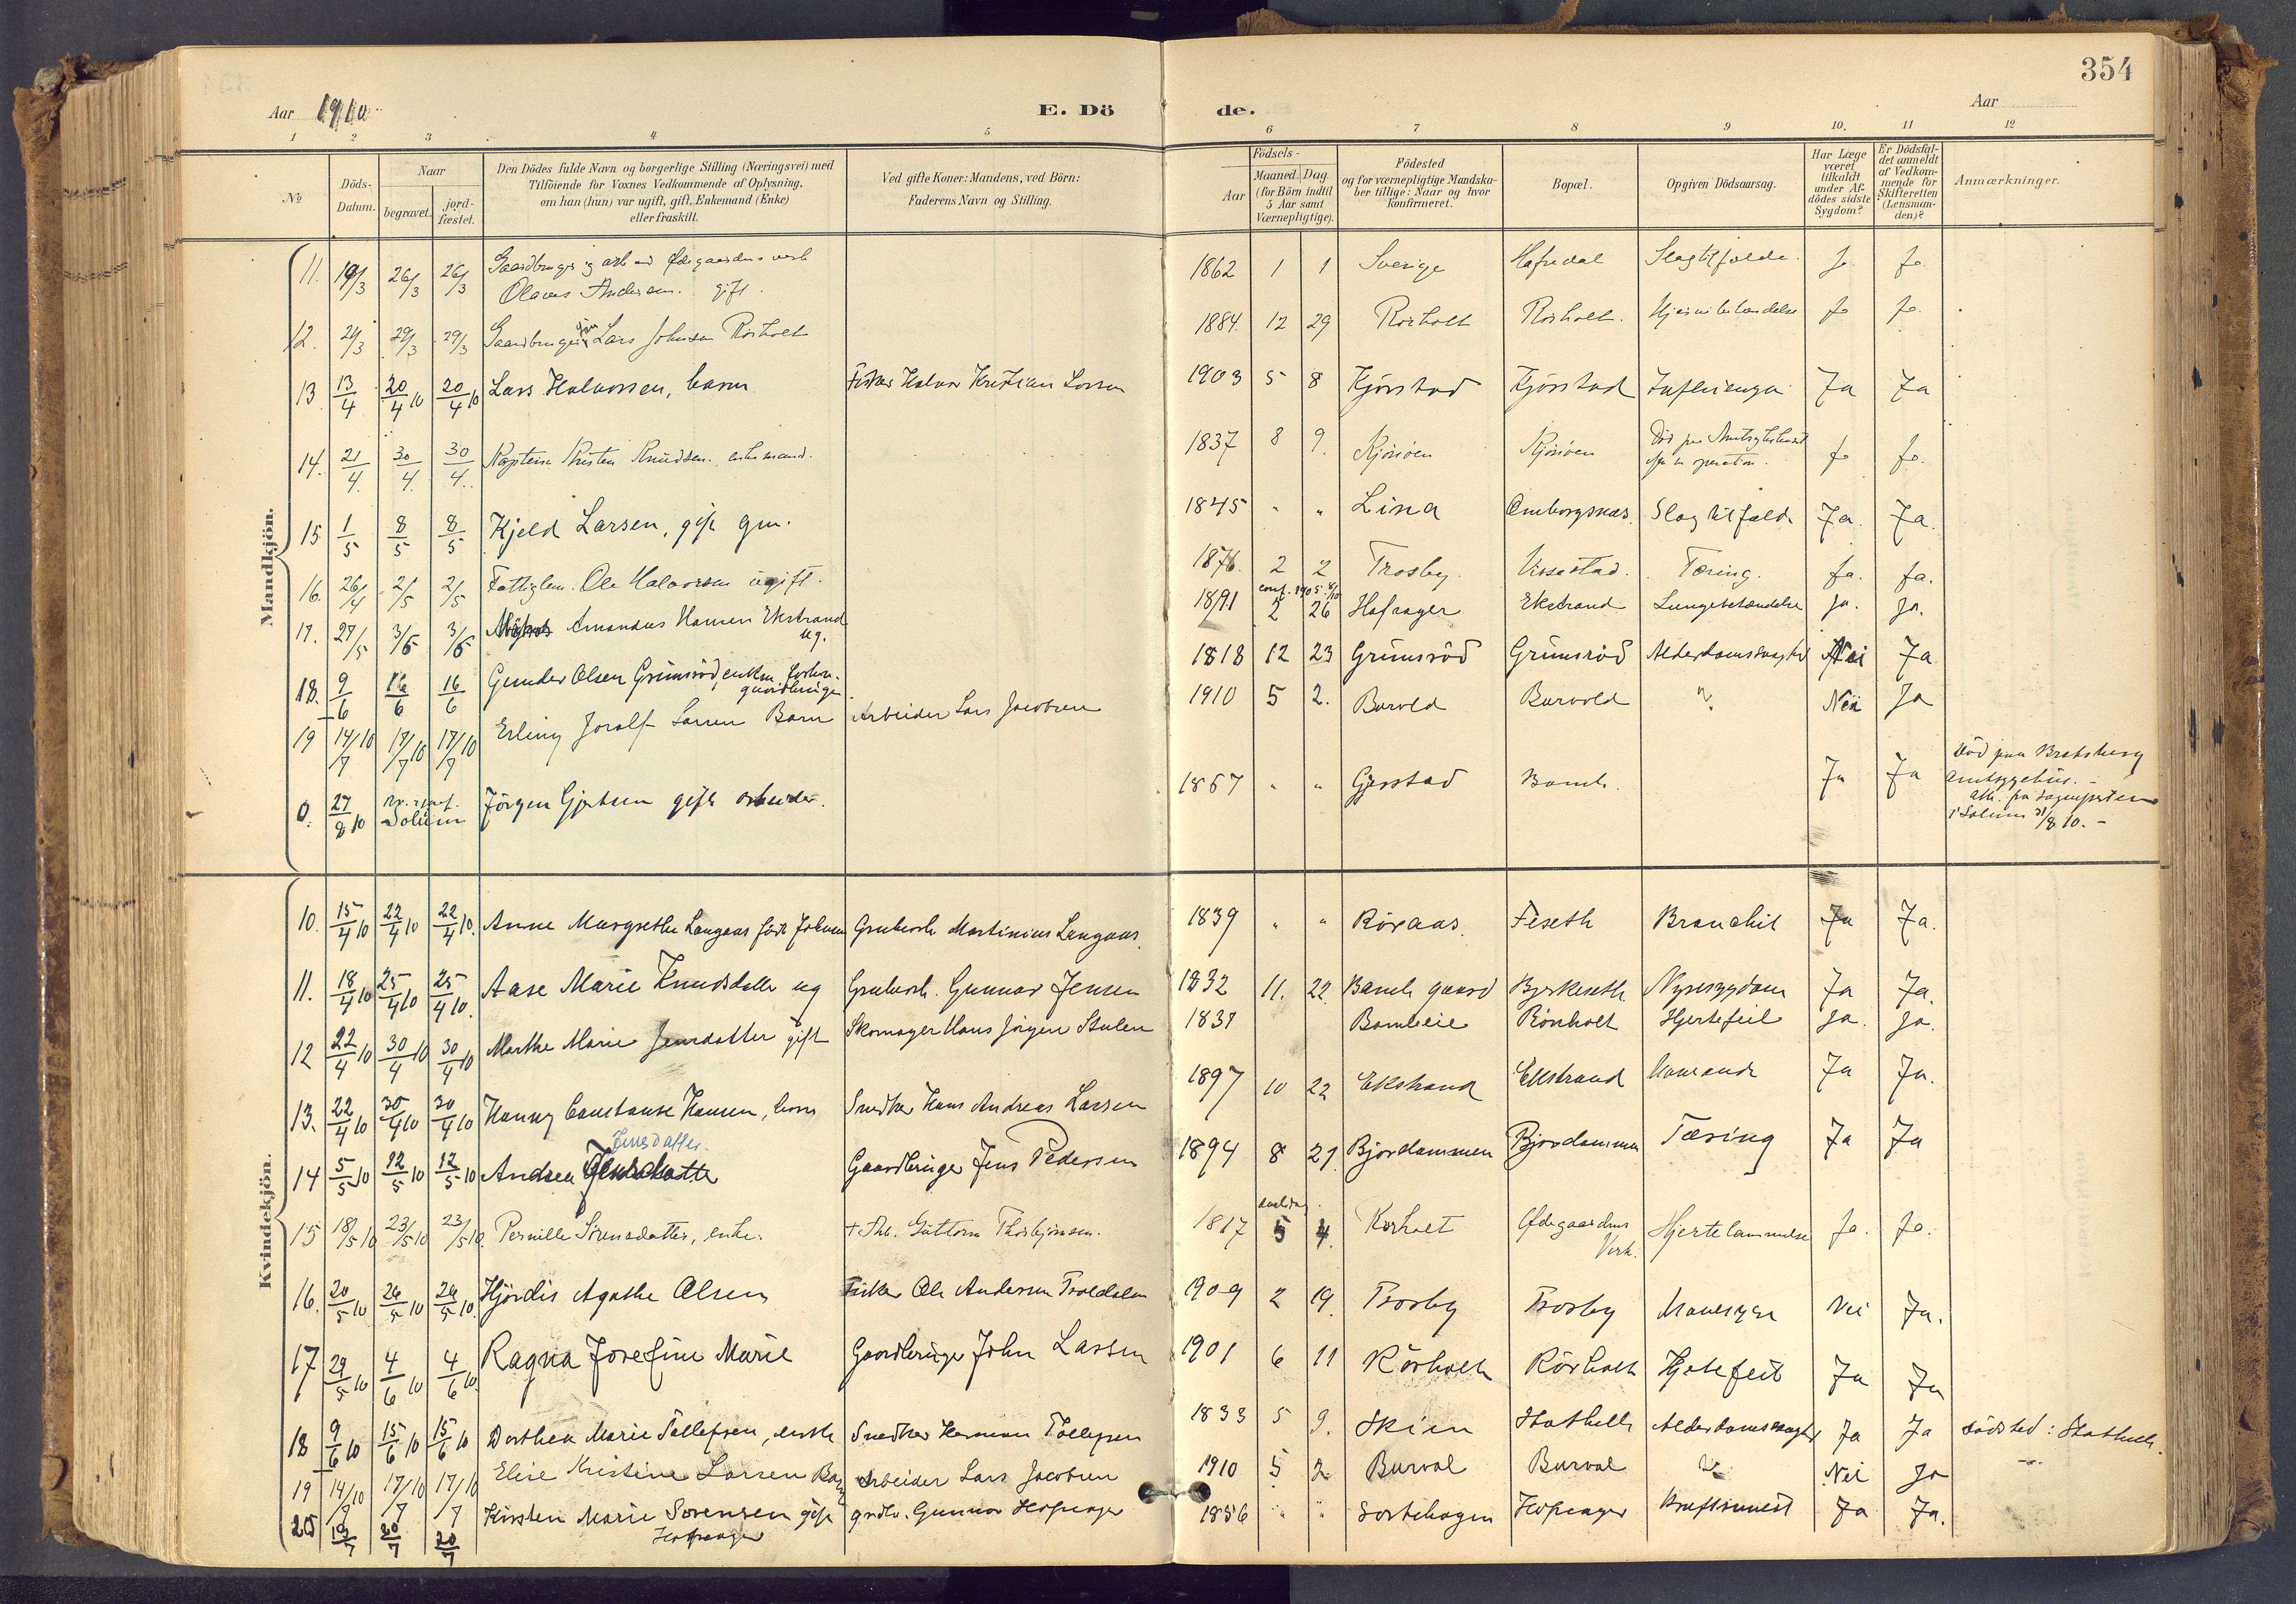 354
Aar 1910
E. Dö
de.
Aar
1 2 3 4 5 6 7 8 9 10. 11 12
№
Döds-
Datum.
Naar
begravet.
jord-
fæstet.
Den Dödes fulde Navn og borgerlige Stilling (Næringsvei) med
Tilföiende for Voxnes Vedkommende af Oplysning,
om han (hun) var ugift, gift, Enkemand (Enke)
eller fraskilt.
Ved gifte Koner: Mandens, ved Börn:
Faderens Navn og Stilling.
Födsels-
Aar
Maaned.
Dag
(for Börn indtil
5 Aar samt
Værnepligtige).
Födested
og for værnepligtige Mandska-
ber tillige: Naar og hvor
konfirmeret.
Bopæl.
Opgiven Dödsaarsag.
Har Læge
været
tilkaldt
under Af-
dödes sidste
Sygdom?
Er Dödsfal-
det anmeldt
af Vedkom-
mende for
Skifteretten
(Lensman-
den)?
Anmærkninger.
Mandkjön.
11. 19/3 26/3 26/3 Gaardbruger og arb ved Ødegaardens verk
Olaves Andersen. gift. 1862 1 1 Sverige Hafredal Slagtilfælde. Ja. Ja.
12. 24/3 29/3 29/3 Gaardbruger Lars Johnsen Rörholt 1884. 12 29 Rörholt Rörholt. Ja Ja.
13 13/4 20/4 10 20/4 10 Lars Halvorsen, barn Fisker Halvor Kristian Larsen 1903 5 8 Kjörstad Kjörstad Ja Ja
14. 21/4. 30/4. 30/4. Kaptein Kristen Knudsen. enkemand. 1837 8 9. Kjönöen Kjönöen Ja Ja.
15 1/5 8/5 8/5 Kjeld Larsen, gift gm. 1845 " " Lina Slagtilfælde Ja. Ja.
16. 26/4 2/5 2/5 Fattiglem. Ole Halvorsen ugift. 1876. 2 2 Trosby. Tæring. Ja. Ja.
17. 27/5 3/6 3/6 Amandus Hansen Ekstrand
ug. 1891 2 26 Hafsager Ekstrand Lungebetændelse Ja. Ja.
18. 9/6 16/6 16/6 Gunder Olsen Grimsröd, enkm. forhen.
gaardbruger 1818 12 23 Grimsröd Grimsröd Alderdomssvaghed Nei Ja
19 14/7 10 17/7 10 17/7 10 Erling Joralf Larsen Barn Arbeider Lars Jacobsen 1910 5 2. Burvold Burvold Nei Ja
0. 27/8 10 Solum Jörgen Gjertsen gift arbeider. 1867 " " Gjerstad Bamb. Ja Ja
Död paa Bratsberg
amtssygehus. -
att. fra sogneprsten
i Solum 31/8 10. -
Kvindekjön.
10. 15/4 10 22/4 10 22/4 10. Anne Margrethe Langaas födt Johnsen Grubearb. Martinius Langaas. 1839 " " Röraas. Feseth Bronchit Ja Ja.
11. 18/4 10 25/4 10 25/4 10. Aase Marie Knudsdatter ug Grubearb. Gunnar Jensen 1832 11. 22. Bamle gaard Bjerkeseth Nyresygdom Ja Ja.
12 22/4 10 30/4 10 30/4 10 Marthe Marie Jensdatter gift Skomager Hans Jörgen Stulen 1837 Bambleeie Rönholt Hjertefeil Ja. Ja.
13. 22/4 10 30/4 10 30/4 10 Hanny Constanse Hansen, barn Snedker Hans Andreas Larsen 1897 10 22 Ekstrand Ekstrand Ja Ja.
Jensdatter.
14 5/5 10 12/5 10 12/5 10 Andrea Jensdatter Gaardbruger Jens Pedersen 1894 8 21 Bjordammen Bjordammen Tæring Ja Ja
15 18/5 10 23/5 10 23/5 10. Pernille Sörensdatter, enke. + Arb. Guttorm Thorbjörnsen. 1817 5 4. Rörholt Ødegaardens
Verk. Hjertelammelse Ja. Ja.
16. 20/5 10 26/5 10 26/5 10. Hjördis Agathe Olsen Fisker Ole Andersen Troldalen 1909 2 19. Trosby Trosby Mavesyge Nei Ja.
17 29/5 10 4/6 10 4/6 10. Ragna Josefine Marie Gaardbruger John Larsen 1901 6 11 Rörholt Rörholt Hjertefeil Ja Ja
18 9/6 10 15/6 10 15/6 10 Dorthea Marie Tollefsen, enke Snedker Herman Tollefsen 1833 5 9. Skien Stathelle Alderdomssvaghed Ja Ja Dödsted: Stathelle.
19 14/7 10 17/7 10 17/7 10 Elise Kristine Larsen Barn Arbeider Lars Jacobsen 1910 5 2. Burvol Burvol Nei Ja
20 13/7 20/7 20/7 Kirsten Marie Sörensen gift
Hafsager grdbr. Gunnar Hafsager 1856 " " Sortehogen Hafsager Ja Ja.